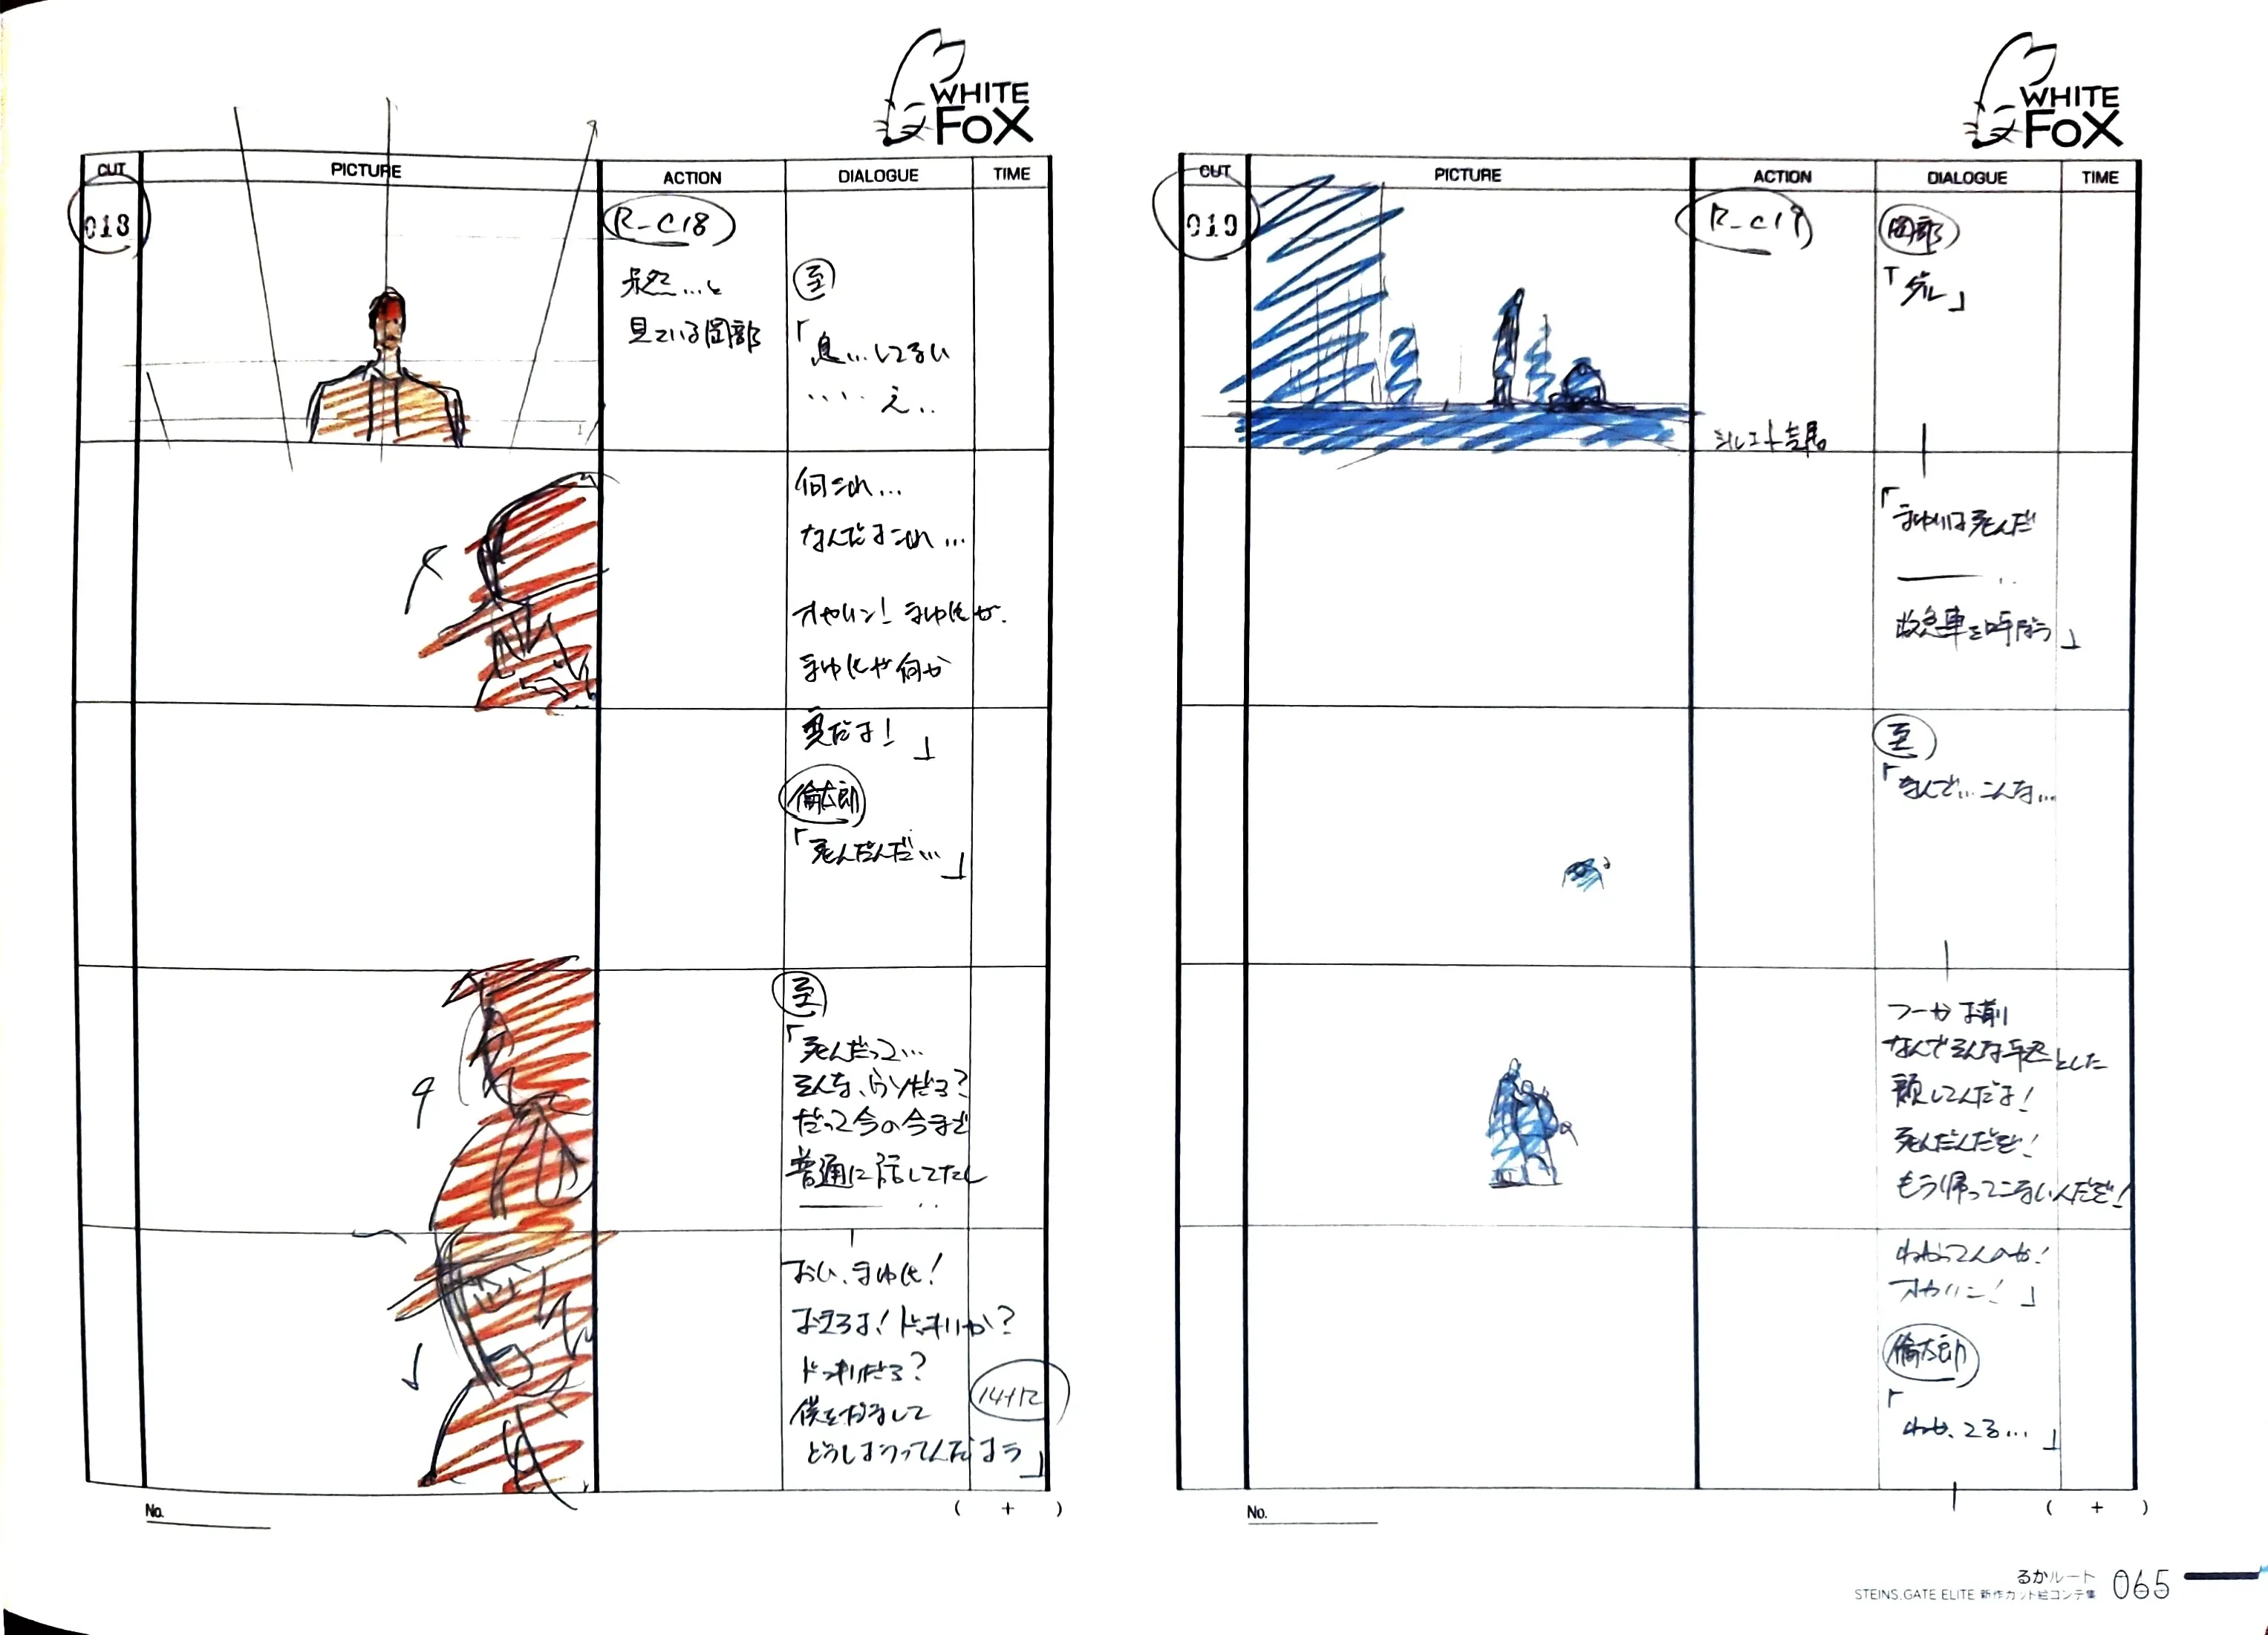 WHITE
FOX
CUT
PICTURE
ACTION
DIALOGUE
TIME
018
R-C18
呆然…と
見ている岡部
至
「息…してない
….え..
何これ…
なんだよこれ…
オカリン！まゆ氏が.
まゆ氏が何か
変だよ！」
倫太郎
「死んだんだ…」
至
「死んだって…
そんな、ウソだろ？
だって今の今まで
普通に話してたし
――‥
おい、まゆ氏！
おきろよ！ドッキリか？
ドッキリだろ？
僕をだまして
どうしようってんだよう」
14+12
No.
( + )
WHITE
FOX
CUT
PICTURE
ACTION
DIALOGUE
TIME
019
R-C19
シルエット芝居
岡部
「ダル」
「まゆりは死んだ
――‥
救急車を呼ぼう」
至
「なんで…こんな…
つーかお前
なんでそんな平然とした
顔してんだよ！
死んだんだぞ！
もう帰ってこないんだぞ！
わかってんのか！
オカリン！」
倫太郎
「
わかってる…」
No.
( + )
るかルート
STEINS;GATE ELITE 新作カット絵コンテ集
065